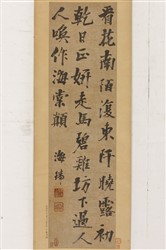 看花南陌復東阡曉露初
乾日正妍走馬碧雞坊下過
人喚作海棠顛
海瑞